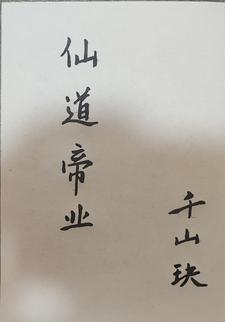 仙道帝业
千山玦